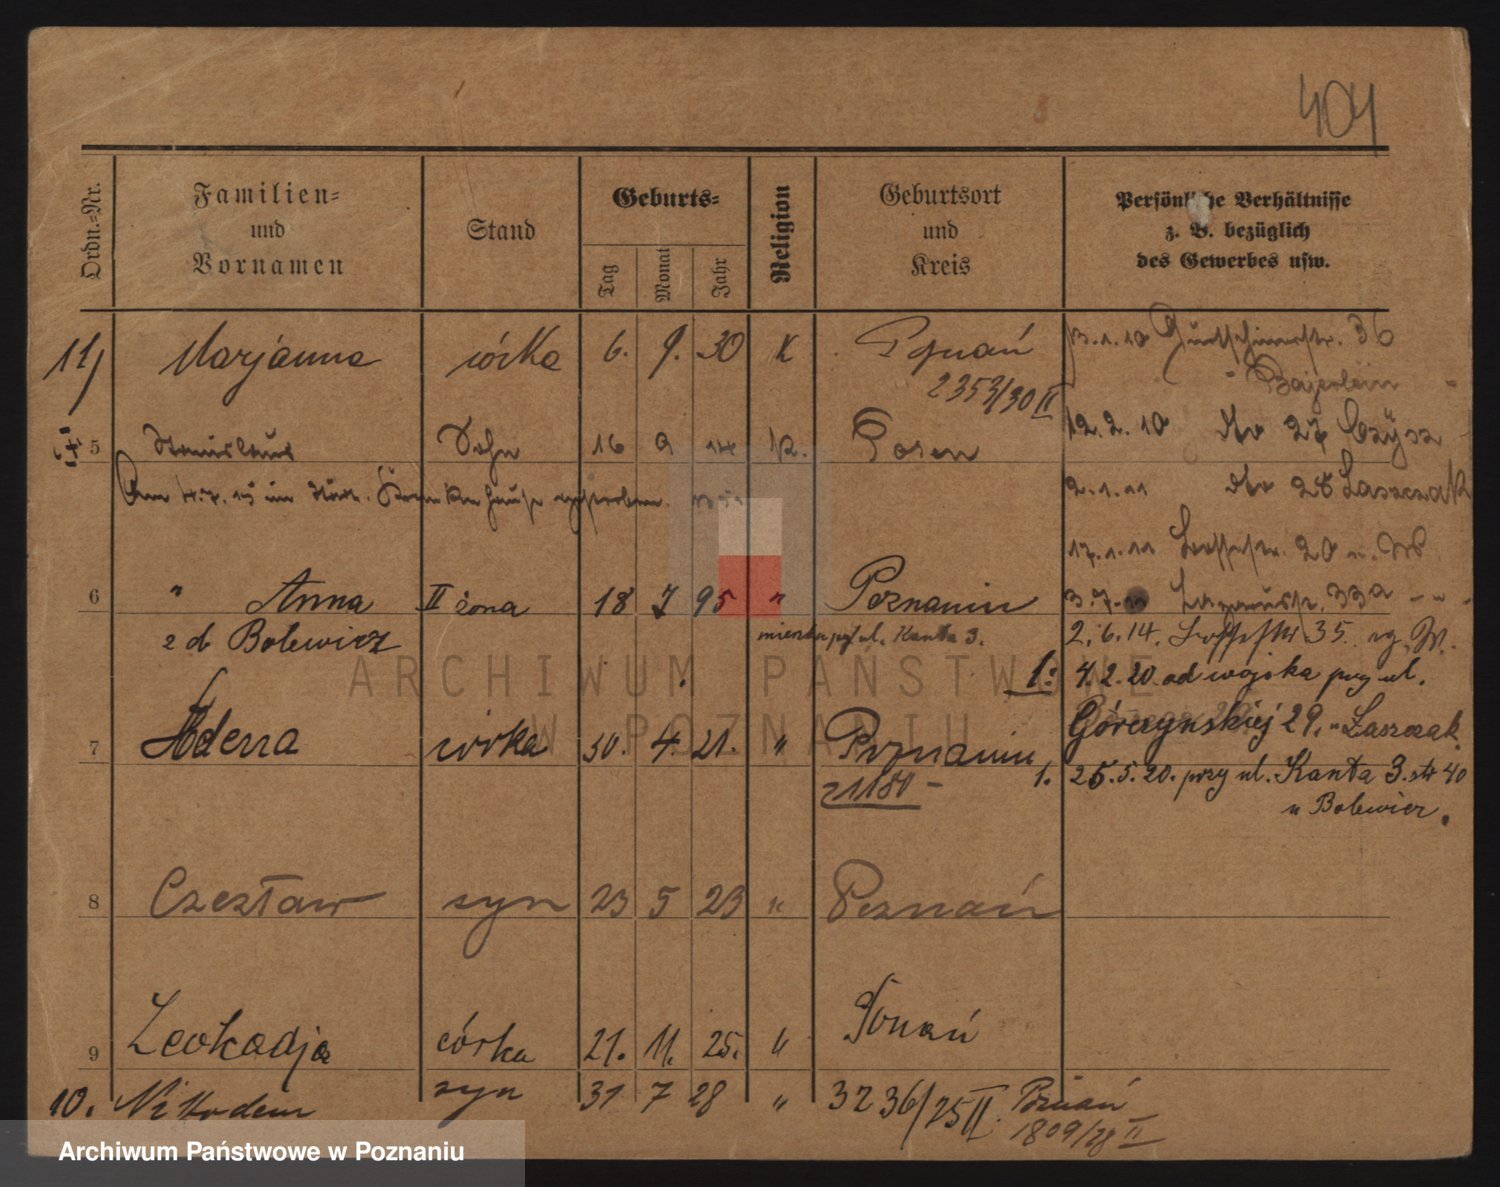 404
Ordn.-Nr.
Familien-
und
Vornamen
Stand
Geburts-
Tag
Monat
Jahr
Religion
Geburtsort
und
Kreis
Persönliche Verhältnisse
z. B. bezüglich
des Gewerbes usw.
11/ Marjanna córka 6. 9. 30 K Poznań
2353/30 II
5 Stanislaus Sohn 16 9 14 k. Posen
Am 4.7.15 im Städt. Krankenhause gestorben.
6 " Anna II żona 18 7 95 " Poznaniu
z d. Bolewicz
mieszka przy ul. Kanta 3.
7 Helena córka 30. 4. 21. " Poznaniu
8 Czesław syn 23 5 23 " Poznań
9 Leokadja córka 21. 11. 25. " Poznań
10. Nikodem syn 31 7 28 " 3236/25 II Poznań
1809/28 II
13.1.10 36
" Bajerlein "
12.2.10 dto 27 Czysz
2.1.11 dto 28 Laszczak
17.1.11 20
3.7. 33a - " -
2.6.14. 35
1: 4.2.20. od wojska przy ul.
Górczynskiej 29. u Laszczak.
1. 25.5.20. przy ul. Kanta 3. str 40
u Bolewicz.
ARCHIWUM PAŃSTWOWE
W POZNANIU
Archiwum Państwowe w Poznaniu